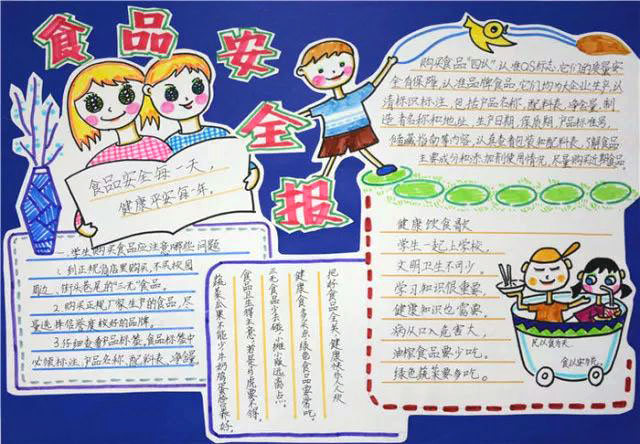 食品安全报
食品安全每一天，
健康平安每一年。
购买食品"四认"，认准QS标志，它们的质量安
全有保障，认准品牌食品，它们均为大企业生产，认
清标识标注，包括产品名称、配料表、净含量、制
造者名称和地址、生产日期、保质期、产品标准号、
储藏指南等内容，认真查看包装和配料表，了解食品
主要成分和添加剂使用情况，尽量购买近期食品
一、学生购买食品应注意哪些问题
1. 到正规商店里购买，不买校园
周边、街头巷尾的"三无"食品。
2. 购买正规厂家生产的食品，尽
量选择信誉度较好的品牌。
3. 仔细查看产品标签，食品标签中
必须标注：产品名称、配料表、净含量
把好食品安全关，健康快乐人人欢
健康食多采点，绿色食品要常吃。
三无食品少去碰，小摊小贩远离点。
食品卫生得注意，若是早

虎要不得。
蔬菜瓜果不能少，牛奶鸡蛋营养好。
健康饮食歌
学生一起上学校，
文明卫生不可少。
学习知识很重要，
健康知识也需要。
病从口入危害大，
油炸食品要少吃。
绿色蔬菜要多吃。
民以食为天
食以安为先